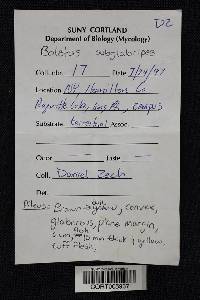 D2
SUNY CORTLAND
Department of Biology (Mycology)
Boletus subglabripes
Coll. nbr. 17 Date 7/24/97
Location NY, Hamilton Co
Raquette Lake, campus
Substrate terrestrial Assoc.
Odor Taste
Coll. Daniel Zech
Det.
Pileus: Brown, convex,
glabrous, plane margin,
6 cm, 10 mm thick, yellow,
buff flesh.
CORT008937